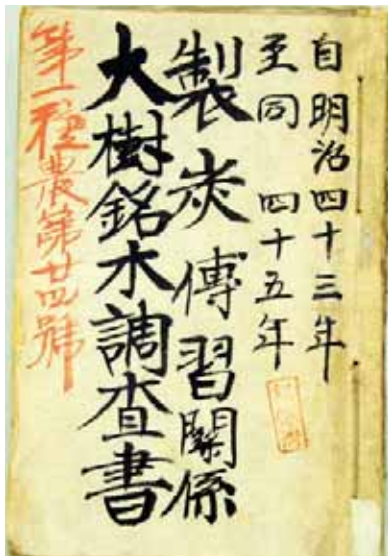 自明治四十三年
至同 四十五年
製炭傳習關係
大樹銘木調査書
第一種農第廿四號